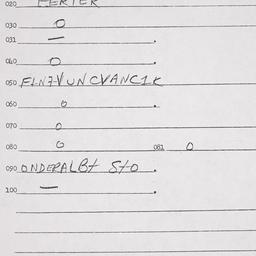 020 FERIER
030 O
031 — .
040 O .
050 FIN7VUNCVANC1K
060 O .
070 O
080 O 081 O
090 ONDERALBT STO .
100 — .